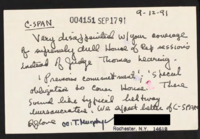 9-12-91
C-SPAN 004151 SEP17'91
Very disappointed w/ your coverage
of supremely dull House of Rep sessions
instead of Judge Thomas hearing.
"Previous commitment", "special
obligation to cover House". These
sound like typical beltway
bureaucrats. We expect better of C-SPAN
T. Murphy
Rochester N.Y. 14618